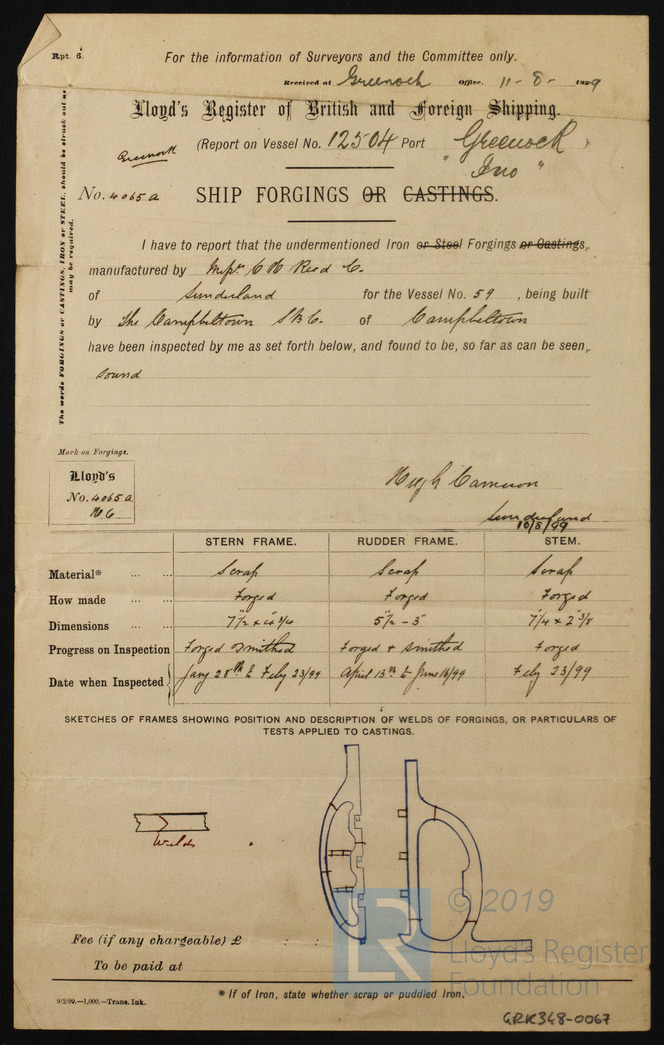 Rpt. 6.
For the information of Surveyors and the Committee only.
Received at Greenock Office, 11-8- 1899
Lloyd's Register of British and Foreign Shipping.
(Report on Vessel No. 12504 Port Greenock)
Greenock
"Ino"
No. 4065a SHIP FORGINGS OR CASTINGS.
The words FORGINGS or CASTINGS, IRON or STEEL, should be struck out as may be required.
I have to report that the undermentioned Iron or Steel Forgings or Castings,
manufactured by Messrs C H Reed Co.
of Sunderland for the Vessel No. 59, being built
by The Campbeltown S B C. of Campbeltown
have been inspected by me as set forth below, and found to be, so far as can be seen,
sound
Mark on Forgings.
Lloyd's
No. 4065a
H.C
Hugh Cameron
Sunderland
10/8/99
STERN FRAME. RUDDER FRAME. STEM.
Material* ... ... Scrap Scrap Scrap
How made ... Forged Forged Forged
Dimensions ... 7 1/2 x 4 3/4 5 1/2 - 3" 7 1/4 x 2 3/8
Progress on Inspection Forged smithed Forged & smithed Forged
Date when Inspected Jany 28th to Feby 23/99 April 13th to June 16/99 Feby 23/99
SKETCHES OF FRAMES SHOWING POSITION AND DESCRIPTION OF WELDS OF FORGINGS, OR PARTICULARS OF
TESTS APPLIED TO CASTINGS.
Welds
Fee (if any chargeable) £ : :
To be paid at
© 2019
LR
Lloyd's Register
Foundation
* If of Iron, state whether scrap or puddled Iron.
9/2/99.—1,000.—Trans. Ink.
GRK348-0067